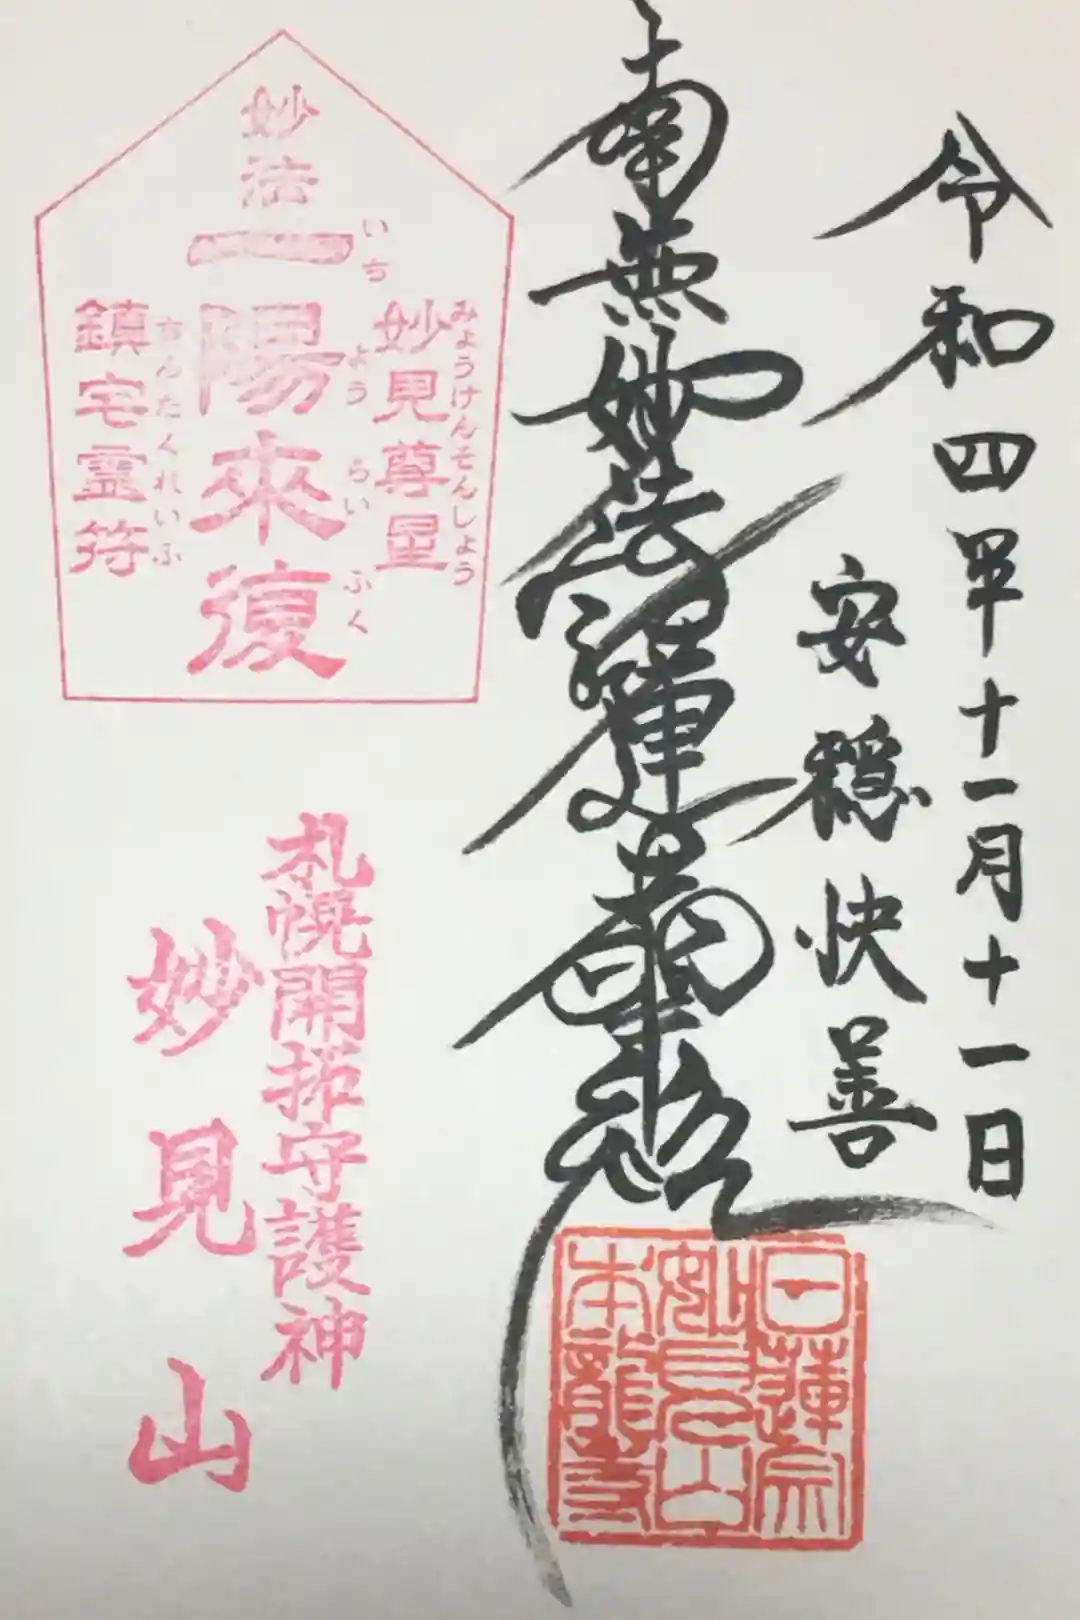 令和四年十一月十一日
安穏快善
南無妙法蓮華経
日蓮宗
妙見山
本龍寺
妙法
一陽来復
いちようらいふく
妙見尊星
みょうけんそんしょう
鎮宅霊符
ちんたくれいふ
札幌開拓守護神
妙見山